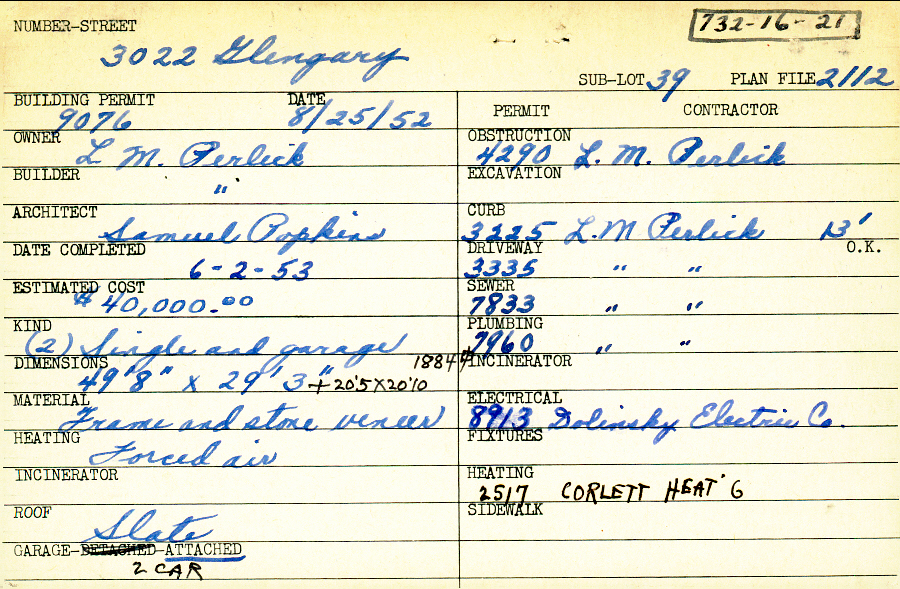 NUMBER-STREET
732-16-21
3022 Glengary
SUB-LOT 39 PLAN FILE 2112
BUILDING PERMIT DATE
9076 8/25/52
PERMIT CONTRACTOR
OWNER
L. M. Perlick
OBSTRUCTION
4290 L. M. Perlick
BUILDER
"
EXCAVATION
ARCHITECT
Samuel Popkins
CURB
3225 L.M Perlick 13'
DATE COMPLETED
6-2-53
DRIVEWAY O.K.
3335 " "
ESTIMATED COST
$40,000.00
SEWER
7833 " "
KIND
(2) Single and garage
PLUMBING
7960 " "
DIMENSIONS 1884
49'8" x 29'3" + 20'5 X 20'10
INCINERATOR
MATERIAL
Frame and stone veneer
ELECTRICAL
8913 Dolinsky Electric Co.
HEATING
Forced air
FIXTURES
INCINERATOR
HEATING
2517 CORLETT HEAT'G
ROOF
Slate
SIDEWALK
GARAGE-DETACHED-ATTACHED
2 CAR